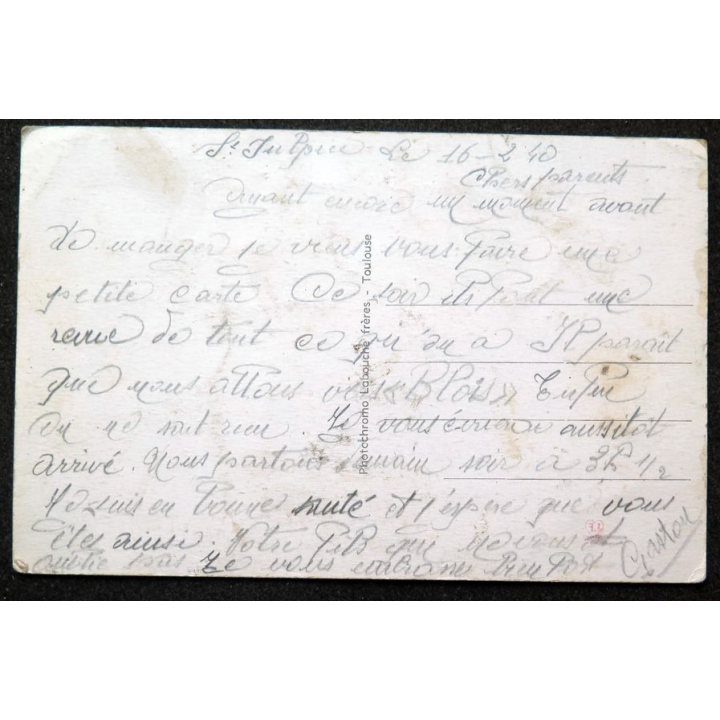 St Sulpice Le 16-2 40
Chers parents
Ayant encore un moment avant
de manger je viens vous faire une
petite carte Ce soir ils font une
revue de tout ce qu'on a Il paraît
que nous allons vers «Blois» Enfin
on ne sait rien. Je vous écrirai aussitôt
arrivé. Nous partons demain soir à 8h 1/2
Je suis en bonne santé et j'espère que vous
êtes ainsi. Votre fils qui ne vous
oublie pas Je vous embrasse bien fort
Gaston
Photochromo Labouche frères - Toulouse